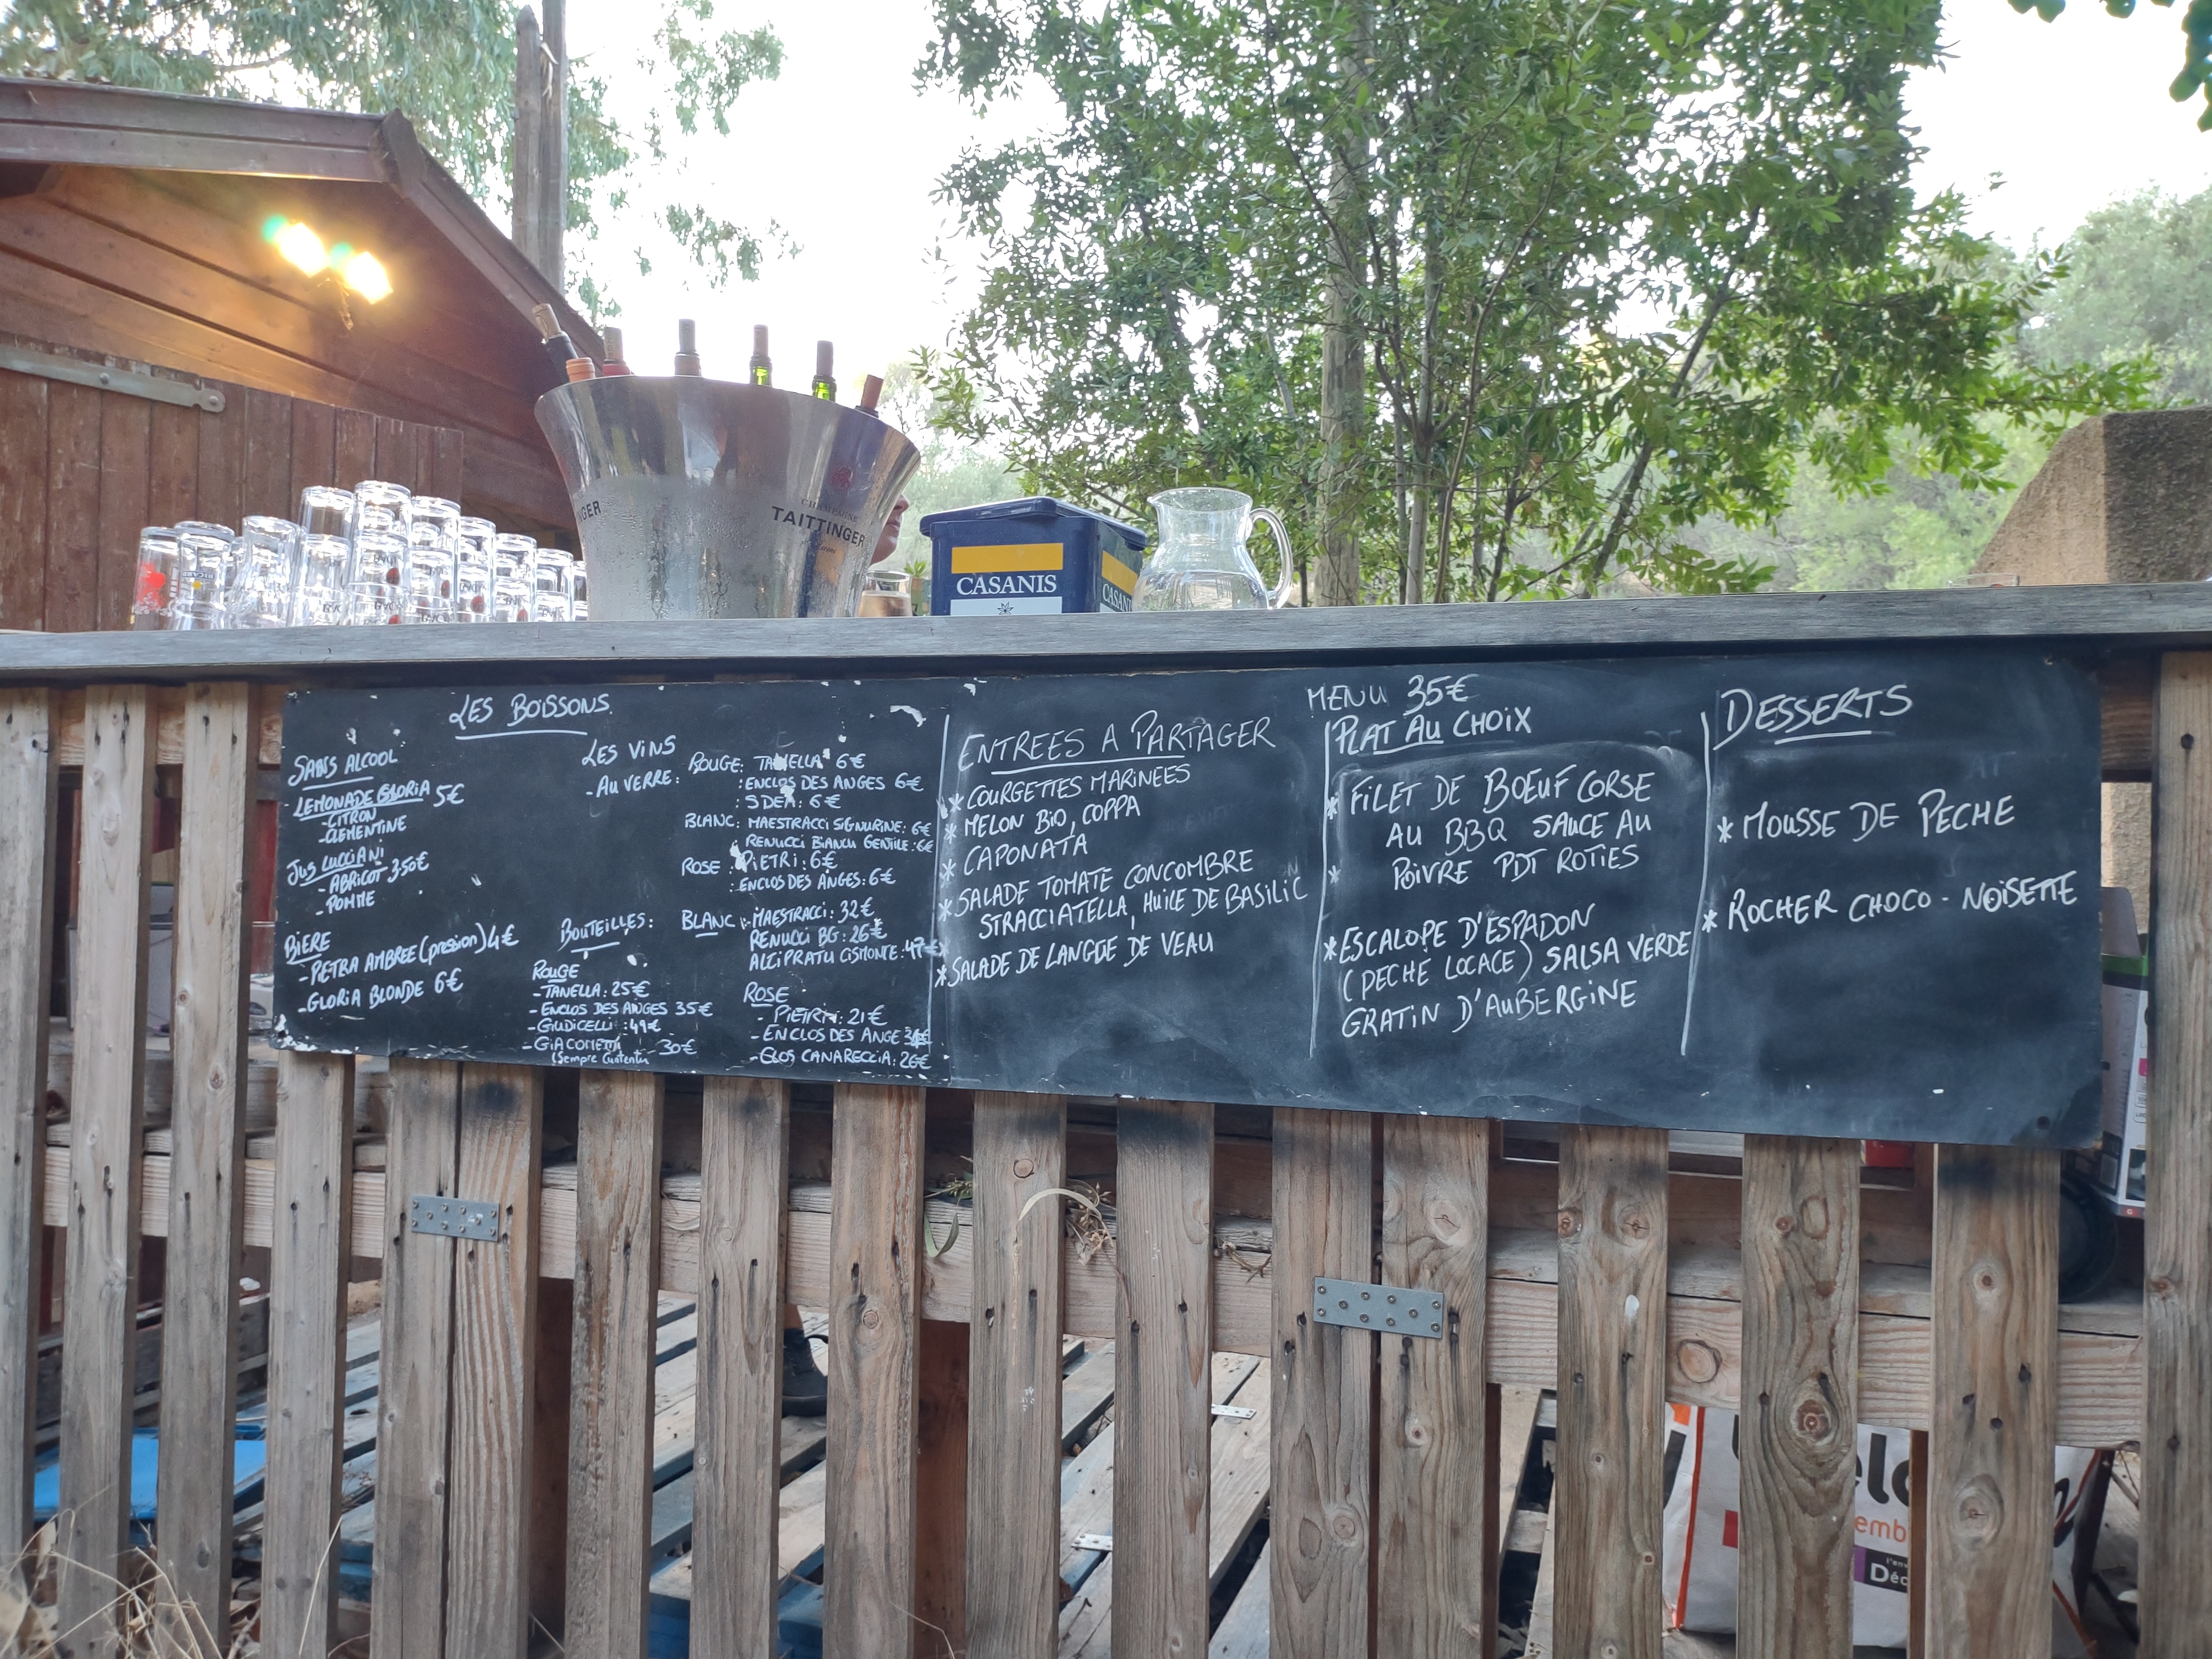 NGER
CHAMPAGNE
TAITTINGER
CASANIS
CASANI
LES BOISSONS
SANS ALCOOL
- LEMONADE GLORIA 5€
- CITRON
- CLEMENTINE
JUS LUCCIANI
- ABRICOT 3.50€
- POMME
BIERE
- PETRA AMBREE (pression) 4€
- GLORIA BLONDE 6€
LES VINS
- AU VERRE:
ROUGE: TANELLA 6€
: ENCLOS DES ANGES 6€
: 6€
BLANC: MAESTRACCI SIGNURINE: 6€
RENUCCI BIANCU GENTILE: 6€
ROSE: PIETRI: 6€
: ENCLOS DES ANGES: 6€
BOUTEILLES:
BLANC: - MAESTRACCI: 32€
RENUCCI BG: 26€
ALZIPRATU CISMONTE: 47€
ROUGE
- TANELLA: 25€
- ENCLOS DES ANGES 35€
- GIUDICELLI: 49€
- GIACOMETTI 30€
(Sempre Cuntentu
ROSE
- PIETRI: 21€
- ENCLOS DES ANGE
- CLOS CANARECCIA: 26€
MENU 35€
ENTREES A PARTAGER
* COURGETTES MARINEES
* MELON BIO, COPPA
* CAPONATA
* SALADE TOMATE CONCOMBRE
STRACCIATELLA, HUILE DE BASILIC
* SALADE DE LANGUE DE VEAU
PLAT AU CHOIX
* FILET DE BOEUF CORSE
AU BBQ SAUCE AU
* POIVRE PDT ROTIES
* ESCALOPE D'ESPADON
(PECHE LOCALE) SALSA VERDE
GRATIN D'AUBERGINE
DESSERTS
* MOUSSE DE PECHE
* ROCHER CHOCO - NOISETTE
elo
emb
Déc